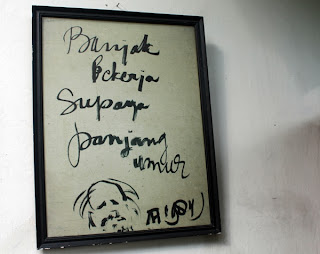 Banjak
Bekerja
Supaya
panjang
umur